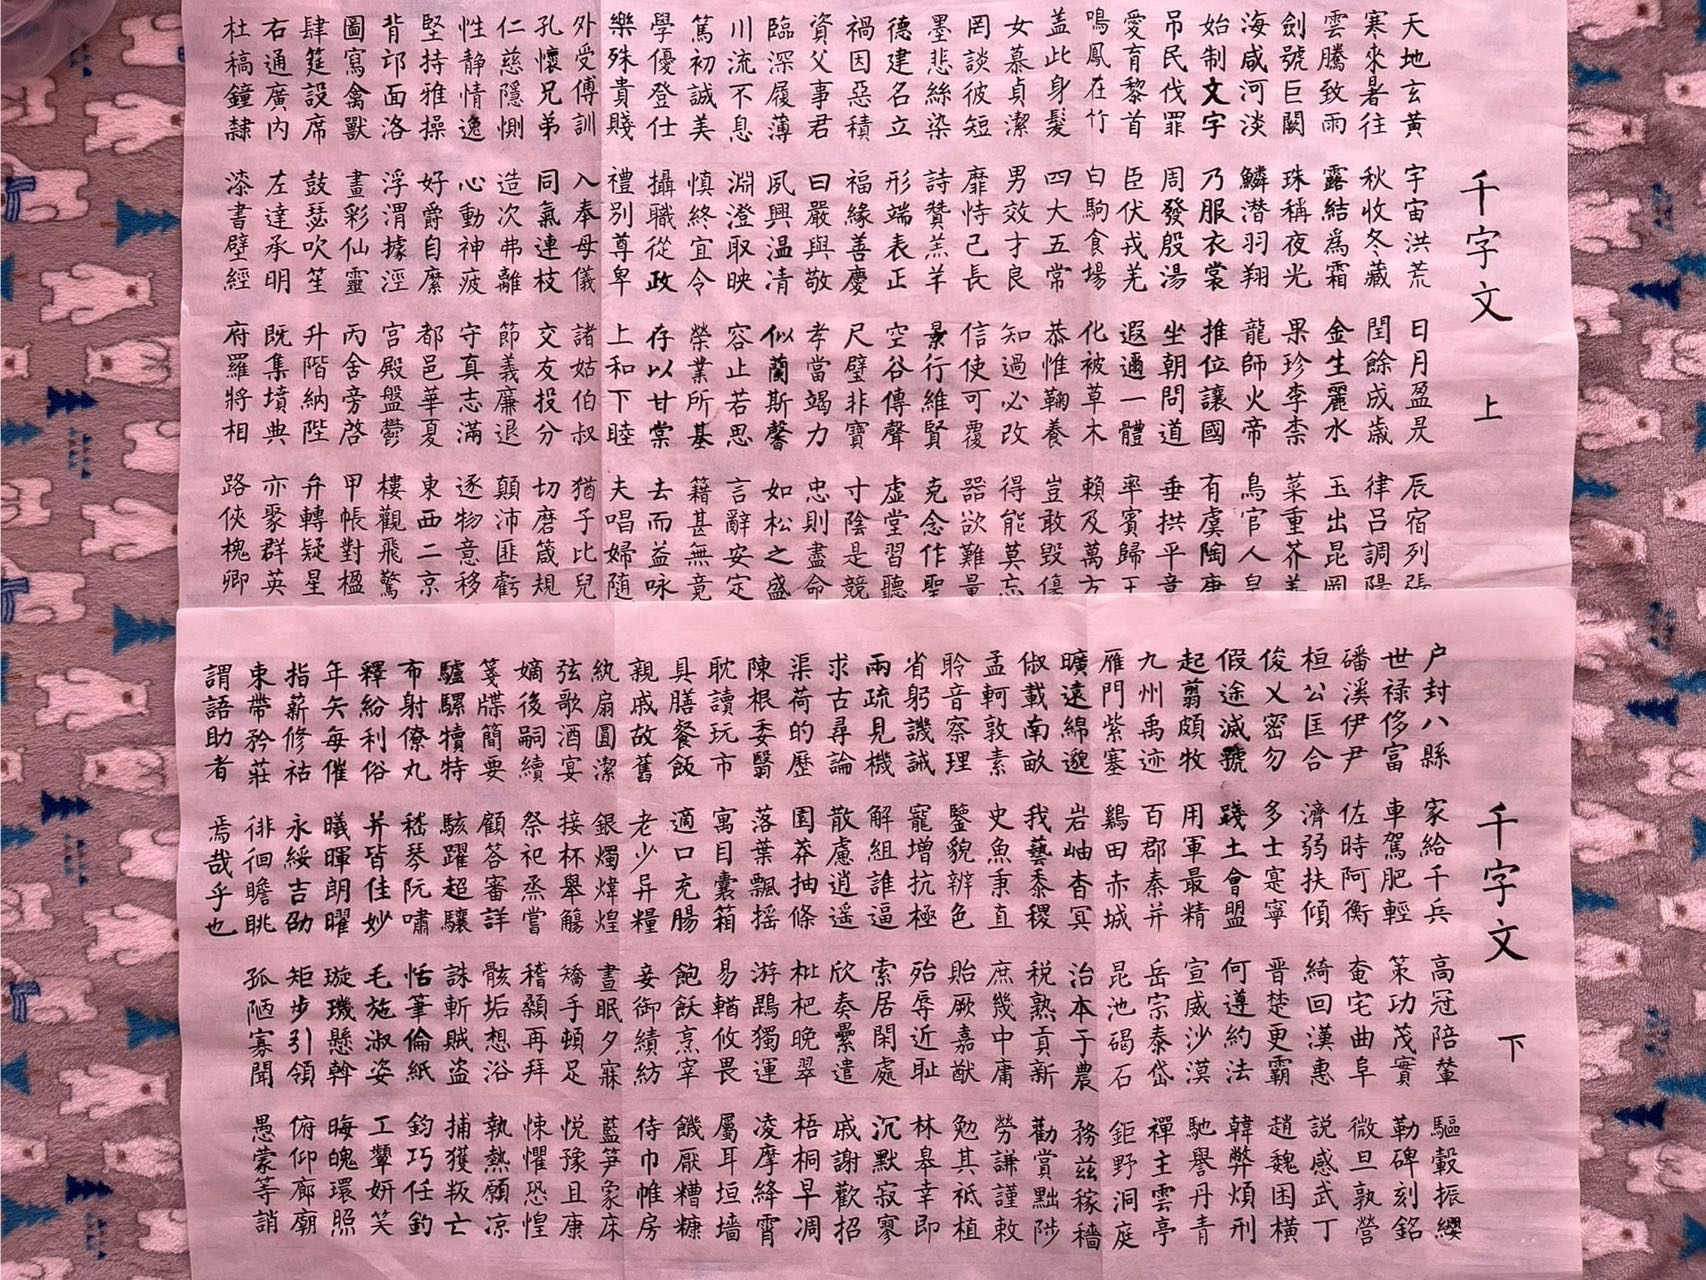 千字文 上
天地玄黃 宇宙洪荒 日月盈昃 辰宿列張
寒來暑往 秋收冬藏 閏餘成歲 律呂調陽
雲騰致雨 露結爲霜 金生麗水 玉出昆岡
劍號巨闕 珠稱夜光 果珍李柰 菜重芥薑
海咸河淡 鱗潛羽翔 龍師火帝 鳥官人皇
始制文字 乃服衣裳 推位讓國 有虞陶唐
吊民伐罪 周發殷湯 坐朝問道 垂拱平章
愛育黎首 臣伏戎羌 遐邇一體 率賓歸王
鳴鳳在竹 白駒食場 化被草木 賴及萬方
蓋此身髮 四大五常 恭惟鞠養 豈敢毀傷
女慕貞潔 男效才良 知過必改 得能莫忘
罔談彼短 靡恃己長 信使可覆 器欲難量
墨悲絲染 詩贊羔羊 景行維賢 克念作聖
德建名立 形端表正 空谷傳聲 虛堂習聽
禍因惡積 福緣善慶 尺璧非寶 寸陰是競
資父事君 曰嚴與敬 孝當竭力 忠則盡命
臨深履薄 夙興温凊 似蘭斯馨 如松之盛
川流不息 淵澄取映 容止若思 言辭安定
篤初誠美 慎終宜令 榮業所基 籍甚無竟
學優登仕 攝職從政 存以甘棠 去而益咏
樂殊貴賤 禮別尊卑 上和下睦 夫唱婦随
外受傅訓 入奉母儀 諸姑伯叔 猶子比兒
孔懷兄弟 同氣連枝 交友投分 切磨箴規
仁慈隱惻 造次弗離 節義廉退 顛沛匪虧
性静情逸 心動神疲 守真志滿 逐物意移
堅持雅操 好爵自縻 都邑華夏 東西二京
背邙面洛 浮渭據涇 宮殿盤鬱 樓觀飛驚
圖寫禽獸 畫彩仙靈 丙舍旁啓 甲帳對楹
肆筵設席 鼓瑟吹笙 升階納陛 弁轉疑星
右通廣內 左達承明 既集墳典 亦聚群英
杜稿鐘隸 漆書壁經 府羅將相 路俠槐卿
千字文 下
户封八縣 家給千兵 高冠陪輦 驅轂振纓
世禄侈富 車駕肥輕 策功茂實 勒碑刻銘
磻溪伊尹 佐時阿衡 奄宅曲阜 微旦孰營
桓公匡合 濟弱扶傾 綺回漢惠 説感武丁
俊乂密勿 多士寔寧 晋楚更霸 趙魏困橫
假途滅虢 踐土會盟 何遵約法 韓弊煩刑
起翦頗牧 用軍最精 宣威沙漠 馳譽丹青
九州禹迹 百郡秦并 岳宗泰岱 禪主雲亭
雁門紫塞 鷄田赤城 昆池碣石 鉅野洞庭
曠遠綿邈 岩岫杳冥 治本于農 務兹稼穡
俶載南畝 我藝黍稷 税熟貢新 勸賞黜陟
孟軻敦素 史魚秉直 庶幾中庸 勞謙謹敕
聆音察理 鑒貌辨色 貽厥嘉猷 勉其祗植
省躬譏誡 寵增抗極 殆辱近耻 林皋幸即
兩疏見機 解組誰逼 索居閑處 沉默寂寥
求古尋論 散慮逍遥 欣奏纍遣 戚謝歡招
渠荷的歷 園莽抽條 枇杷晚翠 梧桐早凋
陳根委翳 落葉飄摇 游鵾獨運 凌摩絳霄
耽讀玩市 寓目囊箱 易輶攸畏 屬耳垣墻
具膳餐飯 適口充腸 飽飫烹宰 饑厭糟糠
親戚故舊 老少异糧 妾御績紡 侍巾帷房
紈扇圓潔 銀燭煒煌 晝眠夕寐 藍笋象床
弦歌酒宴 接杯舉觴 矯手頓足 悦豫且康
嫡後嗣續 祭祀烝嘗 稽顙再拜 悚懼恐惶
箋牒簡要 顧答審詳 骸垢想浴 執熱願凉
驢騾犢特 駭躍超驤 誅斬賊盗 捕獲叛亡
布射僚丸 嵇琴阮嘯 恬筆倫紙 鈞巧任釣
釋紛利俗 并皆佳妙 毛施淑姿 工顰妍笑
年矢每催 曦暉朗曜 璇璣懸斡 晦魄環照
指薪修祜 永綏吉劭 矩步引領 俯仰廊廟
束帶矜莊 徘徊瞻眺 孤陋寡聞 愚蒙等誚
謂語助者 焉哉乎也